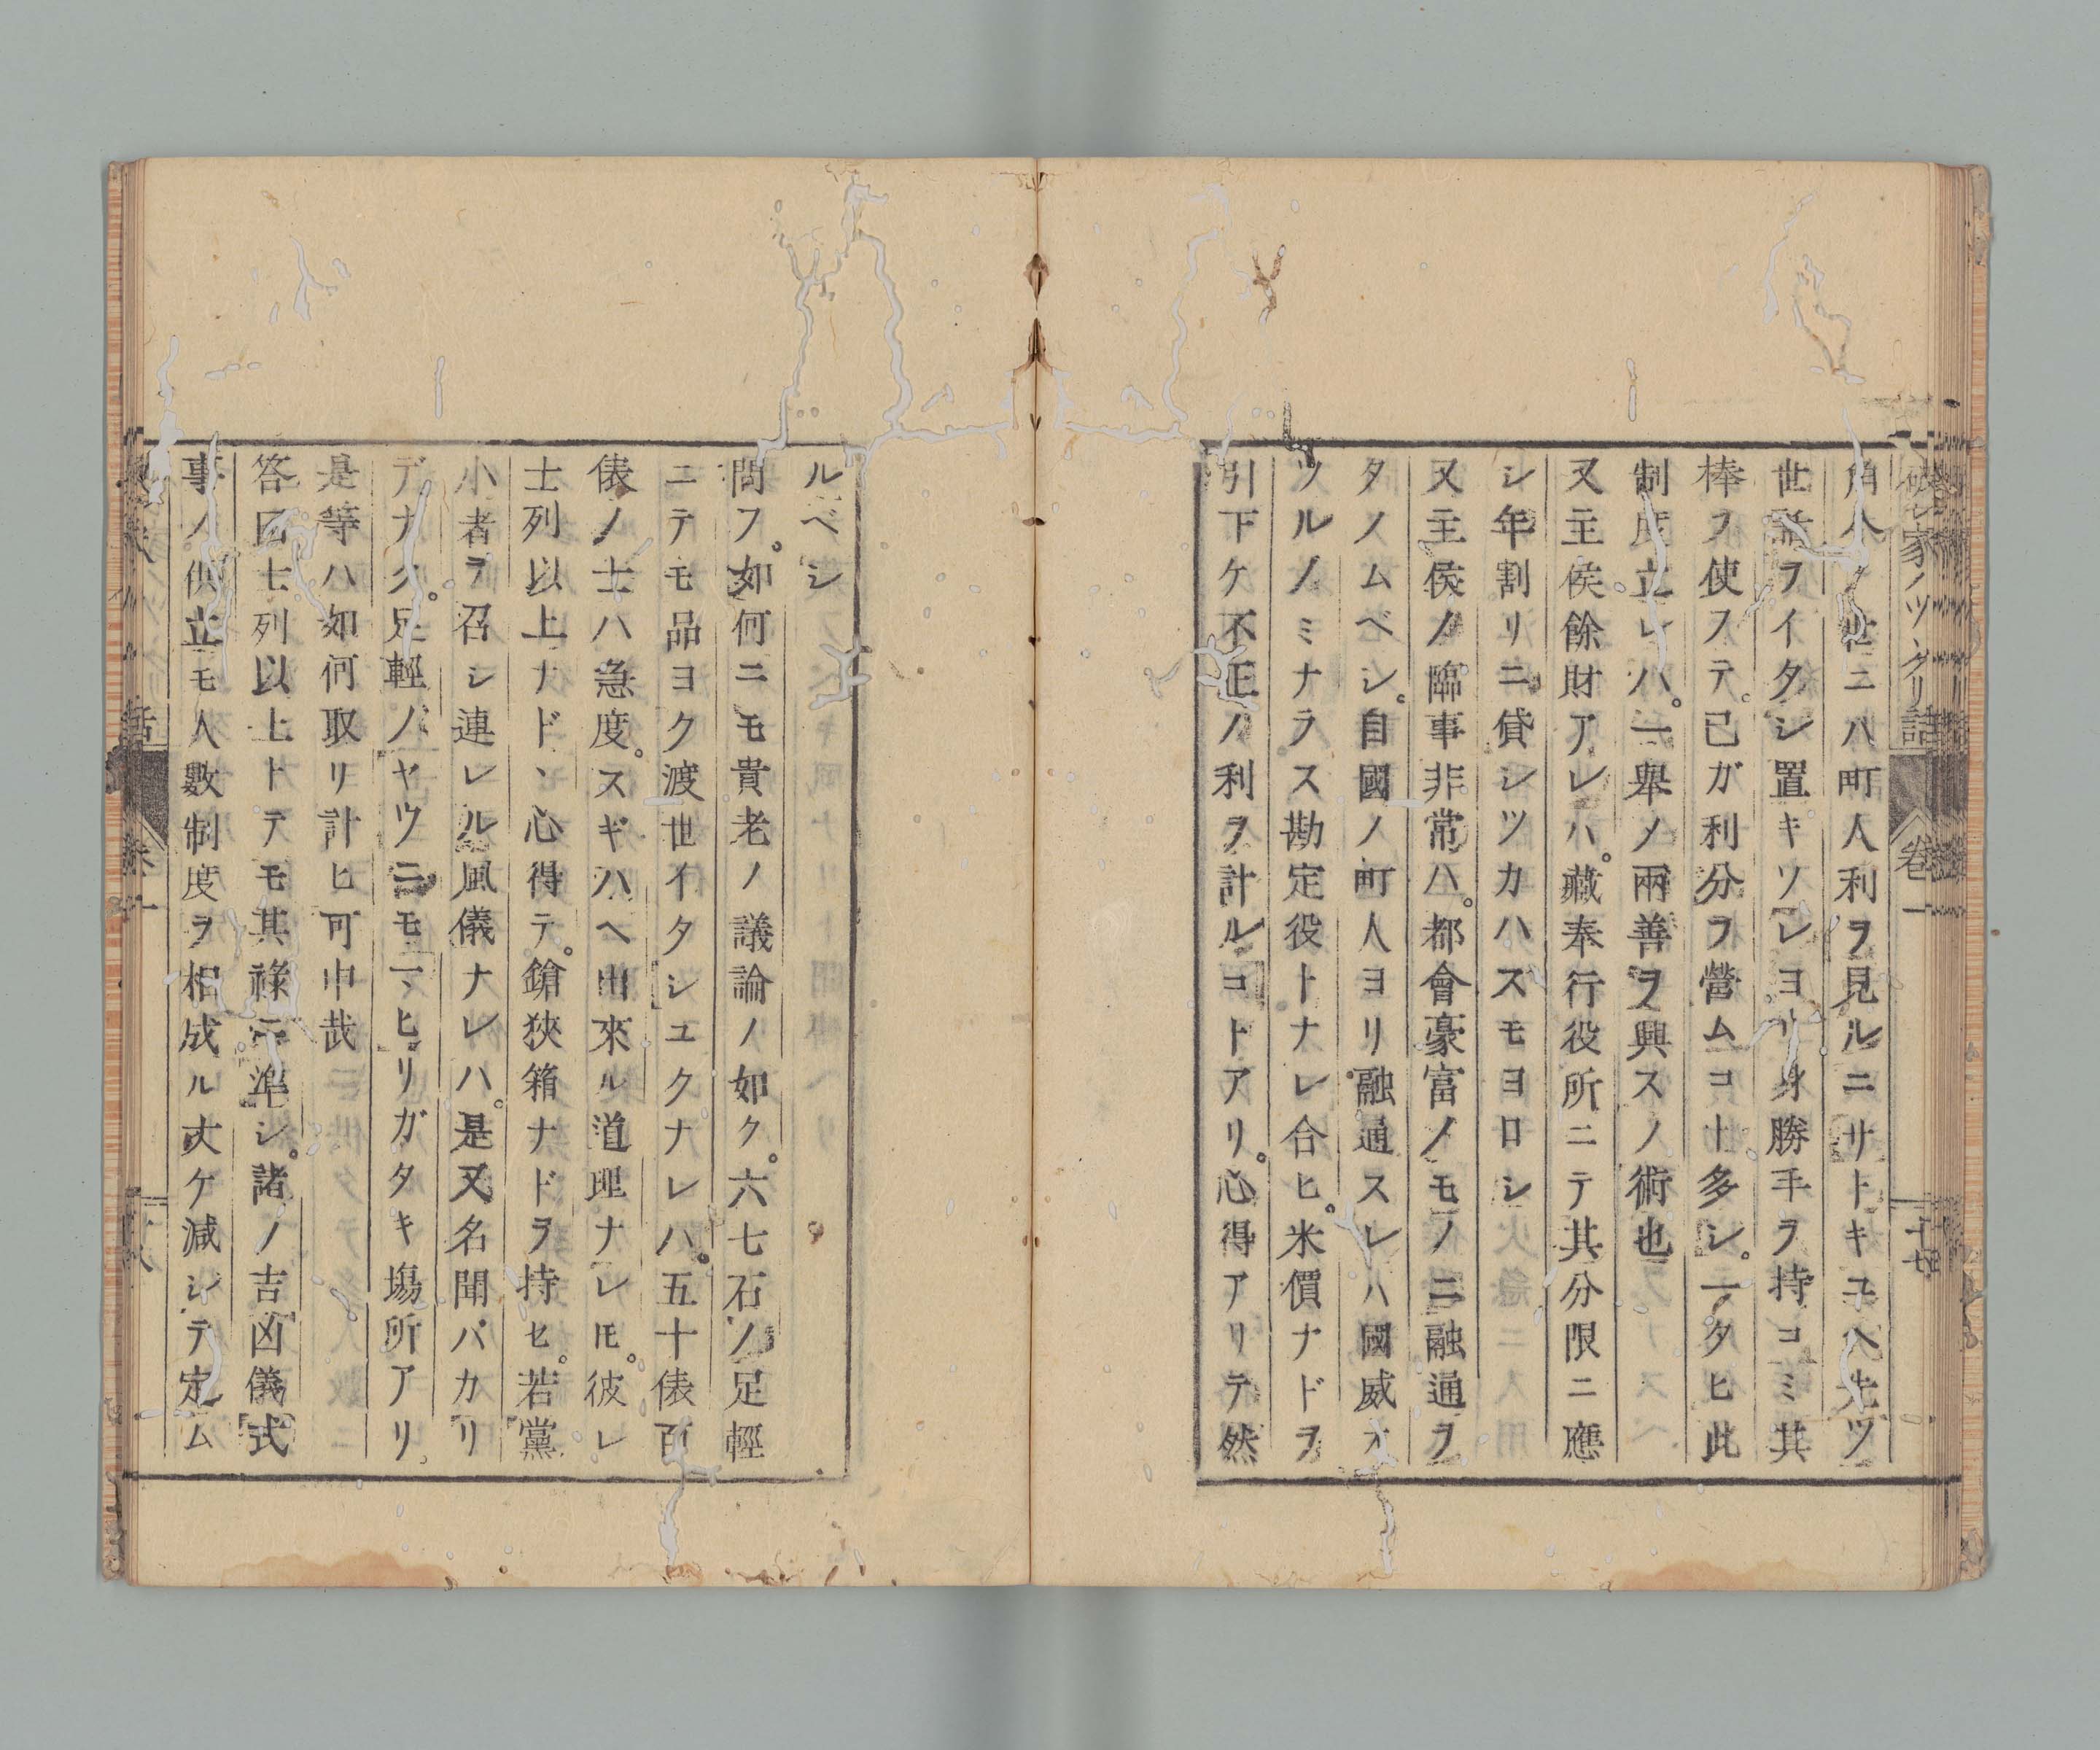 家ノツヽクリ話 卷一 十七
角今ノ世ニハ町人利ヲ見ルニサトキユヘ先ツ
世話ヲイタシ置キソレヨリ身勝手ヲ持コミ其
棒ヲ使フテ。己ガ利分ヲ營ムコト多シ。一タヒ此
制度立レハ。一舉メ兩善ヲ興スノ術也
又主侯餘財アレハ。藏奉行役所ニテ其分限ニ應
シ年割リニ貸シツカハスモヨロシ
又主侯ノ臨事非常ハ。都會豪富ノモノニ融通ヲ
タノムベシ。自國ノ町人ヨリ融通スレハ國威オ
ツルノミナラス勘定役トナレ合ヒ。米價ナドヲ
引下ケ不正ノ利ヲ計ルコトアリ。心得アリテ然
ルベシ
問フ。如何ニモ貴老ノ議論ノ如ク。六七石ノ足輕
ニテモ品ヨク渡世イタシユクナレハ。五十俵百
俵ノ士ハ急度。スギハヘ出來ル道理ナレ𪜈。彼レ
士列以上ナドヽ心得テ。鎗狹箱ナドヲ持セ。若黨
小者ヲ召シ連レル風儀ナレハ。是又名聞バカリ
デナク。足輕ノヤウニモマヒリガタキ塲所アリ
是等ハ如何取リ計ヒ可申哉
答曰士列以上トテモ其祿ニ準シ。諸ノ吉凶儀式
事ノ供立モ人數制度ヲ相成ル丈ケ減シテ定ム
卷一